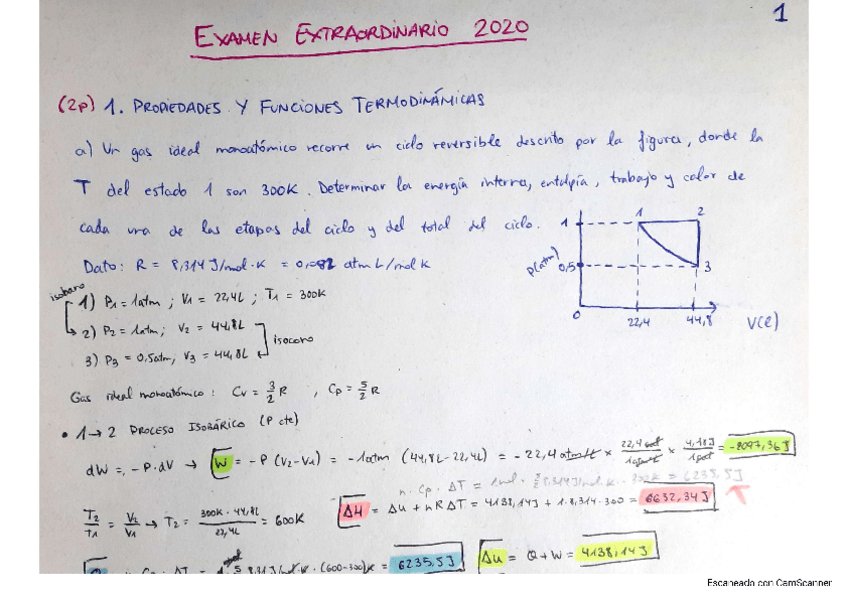 1
EXAMEN EXTRAORDINARIO 2020
(2p) 1. PROPIEDADES Y FUNCIONES TERMODINÁMICAS
a) Un gas ideal monoatómico recorre un ciclo reversible descrito por la figura, donde la
T del estado 1 son 300K. Determinar la energía interna, entalpía, trabajo y calor de
cada una de las etapas del ciclo y del total del ciclo.
Dato: R = 8,314 J/mol·K = 0,082 atm L/mol K
p(atm)
1
0,5
0
1
2
3
22,4
44,8
V(l)
isobaro
1) P1 = 1atm ; V1 = 22,4L ; T1 = 300K
2) P2 = 1atm; V2 = 44,8L
3) P3 = 0,5atm; V3 = 44,8L
isocoro
Gas ideal monoatómico: Cv = 3/2 R , Cp = 5/2 R
• 1→2 PROCESO ISOBÁRICO (P cte)
dW = -P·dV → W = -P (V2-V1) = -1atm (44,8L-22,4L) = -22,4
= -2097,36J
n·Cp·ΔT = 1mol · 8,314J/mol·K · 300K = 6235,5J
T2/T1 = V2/V1 → T2 = 300K·44,8L / 22,4L = 600K
ΔH = Δu + nRΔT = 4138,14J + 1·8,314·300 = 6632,34J
Cp · ΔT = (600-300)K = 6235,5J
Δu = Q+W = 4138,14J
Escaneado con CamScanner